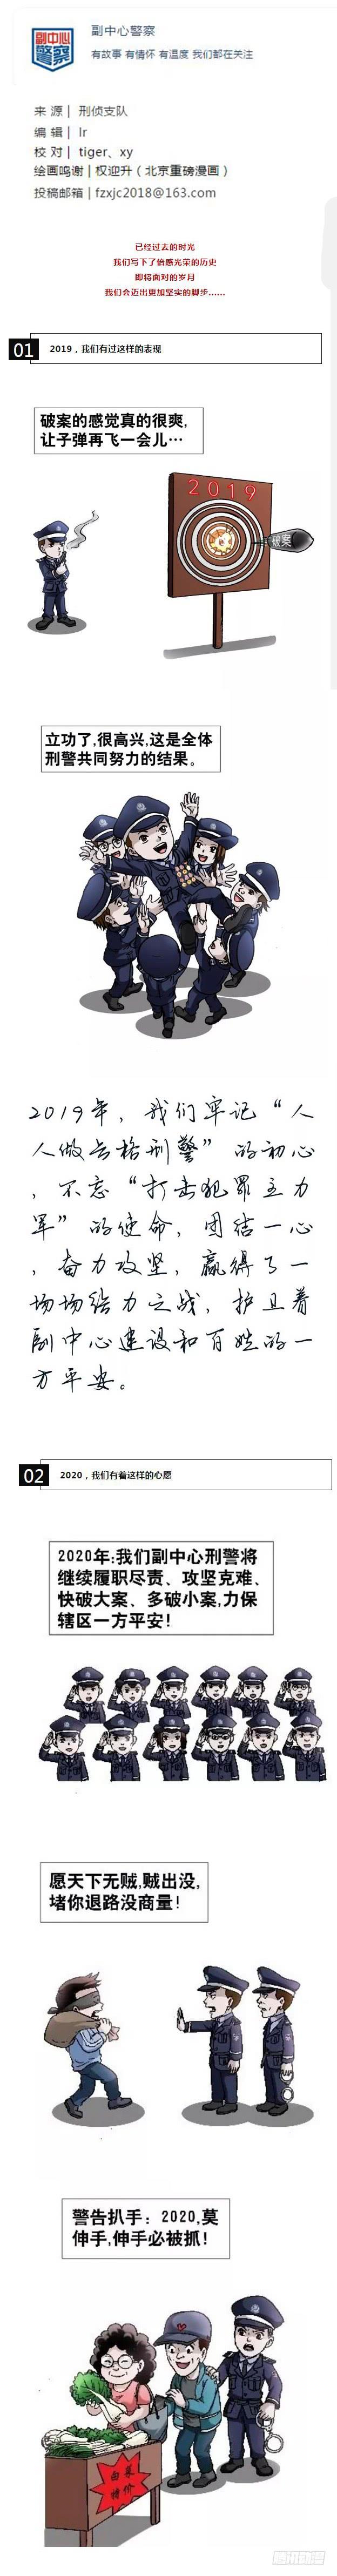 副中心
警察
副中心警察
有故事 有情怀 有温度 我们都在关注
来 源 | 刑侦支队
编 辑 | lr
校 对 | tiger、xy
绘画鸣谢 | 权迎升（北京重磅漫画）
投稿邮箱 | fzxjc2018@163.com
已经过去的时光
我们写下了倍感光荣的历史
即将面对的岁月
我们会迈出更加坚实的脚步……
01 2019，我们有过这样的表现
破案的感觉真的很爽,
让子弹再飞一会儿…
2019
破案
立功了,很高兴,这是全体
刑警共同努力的结果。
2019年，我们牢记“人
人做合格刑警”的初心
，不忘“打击犯罪主力
军”的使命，团结一心
，奋力攻坚，赢得了一
场场给力之战，护卫着
副中心建设和百姓的一
方平安。
02 2020，我们有着这样的心愿
2020年:我们副中心刑警将
继续履职尽责、攻坚克难、
快破大案、多破小案,力保
辖区一方平安!
愿天下无贼,贼出没,
堵你退路没商量!
警告扒手：2020,莫
伸手,伸手必被抓!
白菜
特价
腾讯动漫